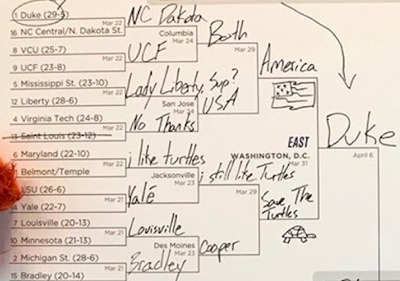 1 Duke (29-5)
NC Dakota
Mar 22
16 NC Central/N. Dakota St.
Columbia
Mar 24
Booth
8 VCU (25-7)
UCF
Mar 22
9 UCF (23-8)
Mar 29
America
5 Mississippi St. (23-10)
Lady Liberty. Sup?
Mar 22
12 Liberty (28-6)
San Jose
Mar 24
USA
4 Virginia Tech (24-8)
No Thanks
Mar 22
13 Saint Louis (23-12)
EAST
WASHINGTON, D.C.
Mar 31
Duke
April 6
6 Maryland (22-10)
i like turtles
Mar 21
11 Belmont/Temple
Jacksonville
Mar 23
i still like Turtles
3 LSU (26-6)
Yale
Mar 21
14 Yale (22-7)
Mar 29
Save The
Turtles
7 Louisville (20-13)
Louisville
Mar 21
10 Minnesota (21-13)
Des Moines
Mar 23
Cooper
2 Michigan St. (28-6)
Bradley
Mar 21
15 Bradley (20-14)